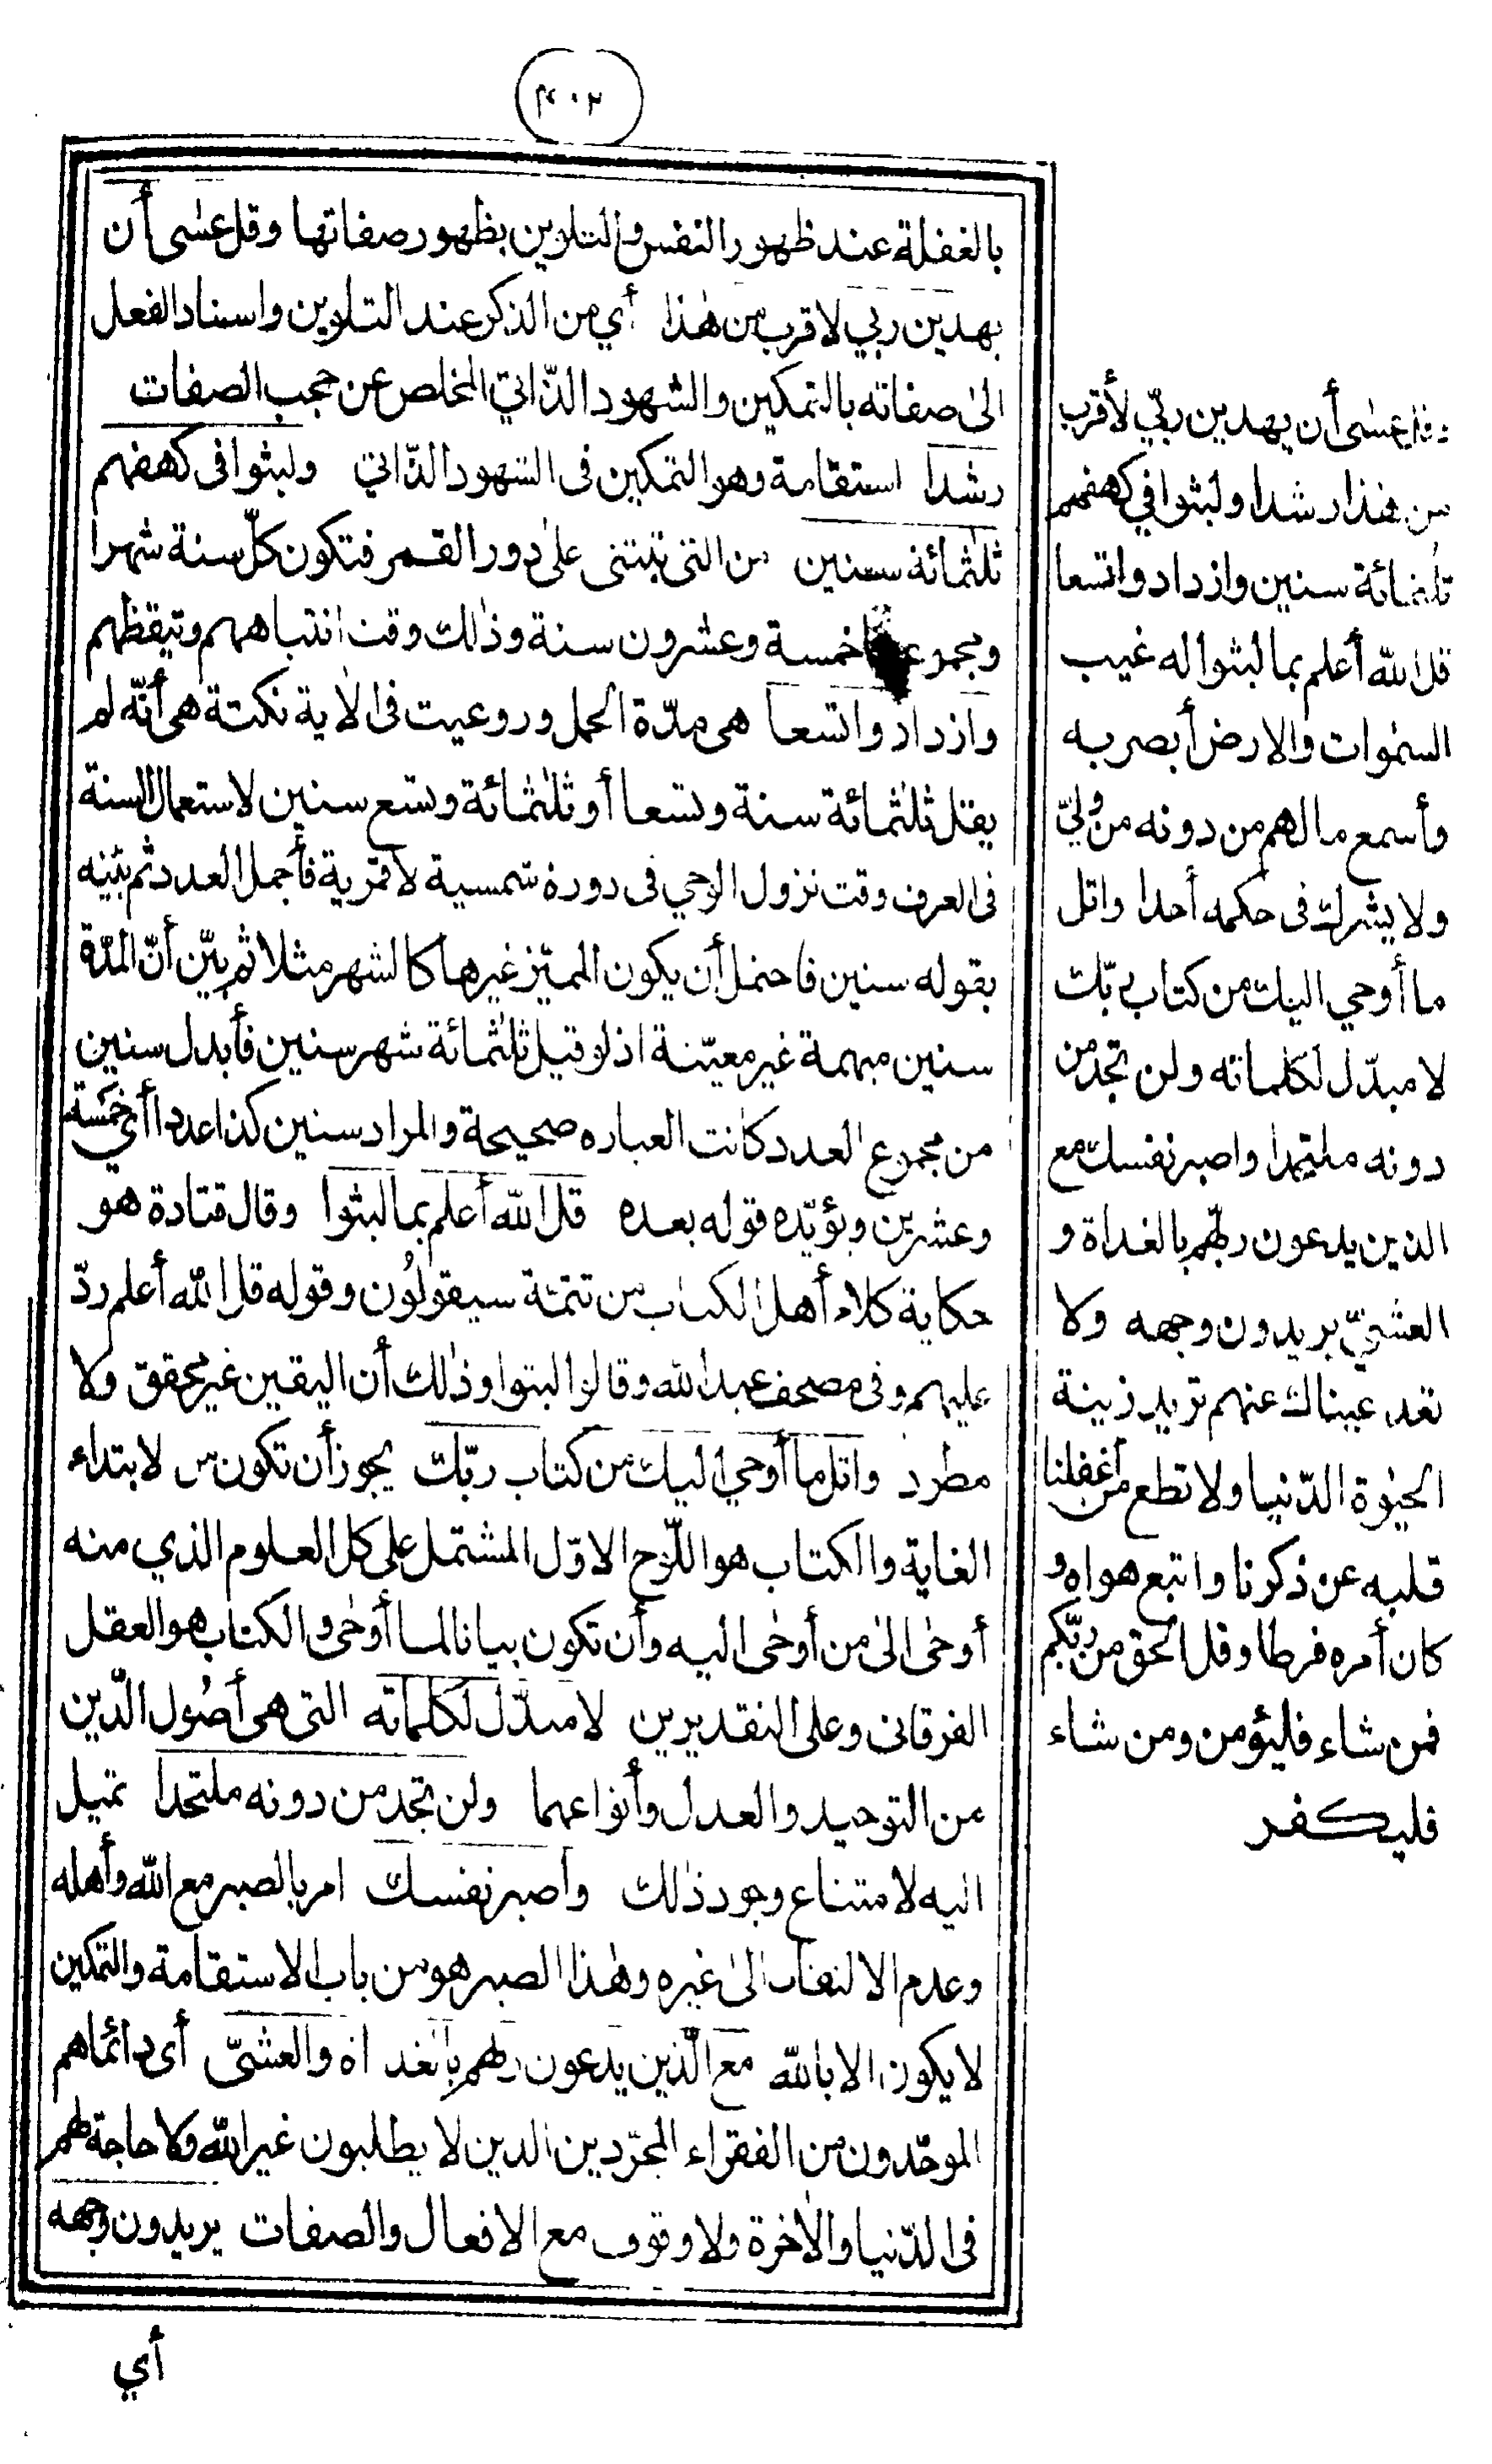 ٤٠٢
بالغفلة عند ظهور النفس والتلوين بظهور صفاتها وقل عسٰى أن
يهدين ربي لاقرب من هٰذا أي من الذكر عند التلوين واسناد الفعل
الىٰ صفاته بالتمكين والشهود الذّاتيّ المخلص عن حجب الصفات
رشدا استقامة وهو التمكين فى الشهود الذّاتي ولبثوا فى كهفهم
ثلٰثمائة سنين من التى تبتنى علىٰ دور القمر فتكون كلّ سنة شهرا
ومجموعها خمسة وعشرون سنة وذٰلك وقت انتباههم وتيقظهم
وازدادوا تسعا هى مدّة الحمل وروعيت فى الاٰية نكتة هى أنّه لم
يقل ثلٰثمائة سنة وتسعا أو ثلٰثمائة وتسع سنين لاستعمال السنة
فى العرف وقت نزول الوحي فى دورة شمسية لا قمرية فأجمل العدد ثم بيّنه
بقوله سنين فاحتمل أن يكون المميّز غيرها كالشهر مثلا ثم بيّن أنّ المدّة
سنين مبهمة غير معيّنة اذ لو قيل ثلٰثمائة شهر سنين فأبدل سنين
من مجموع العدد كانت العباره صحيحة والمراد سنين كذا عددا أي خمسة
وعشرين ويؤيّده قوله بعده قل الله أعلم بما لبثوا وقال قتادة هو
حكاية كلام أهل الكتاب من تتمّة سيقولون وقوله قل الله أعلم ردّ
عليهم وفى مصحف عبد الله وقالوا لبثوا وذٰلك أن اليقين غير محقق ولا
مطرد واتل ما أوحي اليك من كتاب ربّك يجوز أن تكون من لابتداء
الغاية والكتاب هو اللّوح الاوّل المشتمل على كل العلوم الذي منه
أوحى الىٰ من أوحى اليه وأن تكون بيانا لما أوحى والكتاب هو العقل
الفرقانى وعلى التقديرين لا مبدّل لكلماته التى هى أصُول الدّين
من التوحيد والعدل وأنواعهما ولن تجد من دونه ملتحدا تميل
اليه لامتناع وجود ذٰلك واصبر نفسك امر بالصبر مع الله وأهله
وعدم الالتفات الىٰ غيره وهٰذا الصبر هو من باب الاستقامة والتمكين
لا يكون الا بالله مع الّذين يدعون ربهم بالغداة والعشىّ أى دائما هم
الموحّدون من الفقراء المجرّدين الذين لا يطلبون غير الله ولا حاجة لهم
فى الدّنيا والاٰخرة ولا وقوف مع الافعال والصفات يريدون وجهه
أي
وقل عسٰى أن يهدين ربّي لأقرب
من هٰذا رشدا ولبثوا في كهفهم
ثلٰثمائة سنين وازدادوا تسعا
قل الله أعلم بما لبثوا له غيب
السمٰوات والارض أبصر به
وأسمع ما لهم من دونه من وليّ
ولا يشرك فى حكمه أحدا واتل
ما أوحي اليك من كتاب ربّك
لا مبدّل لكلماته ولن تجد من
دونه ملتحدا واصبر نفسك مع
الذين يدعون ربّهم بالغداة و
العشيّ يريدون وجهه ولا
تعد عيناك عنهم تريد زينة
الحيٰوة الدّنيا ولا تطع من أغفلنا
قلبه عن ذكرنا واتبع هواه و
كان أمره فرطا وقل الحق من ربّكم
فمن شاء فليؤمن ومن شاء
فليكفر